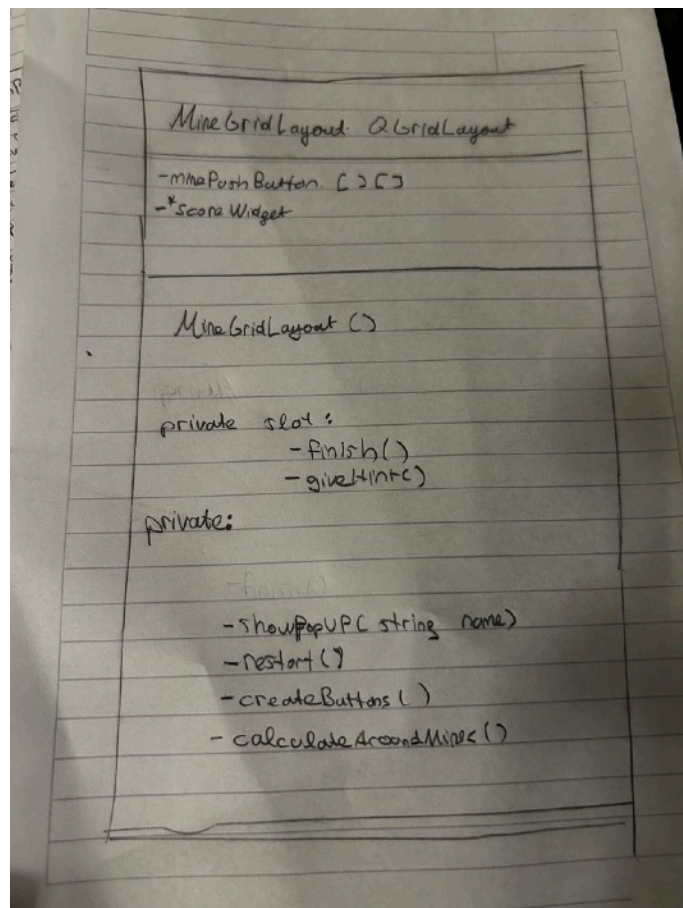 MineGridLayout: QGridLayout
-minePushButton [][]
-*ScoreWidget
MineGridLayout ()
private slot:
-finish()
-giveHint()
private:
-showPopUP( string name)
-restart()
-createButtons()
-calculateAroundMines()